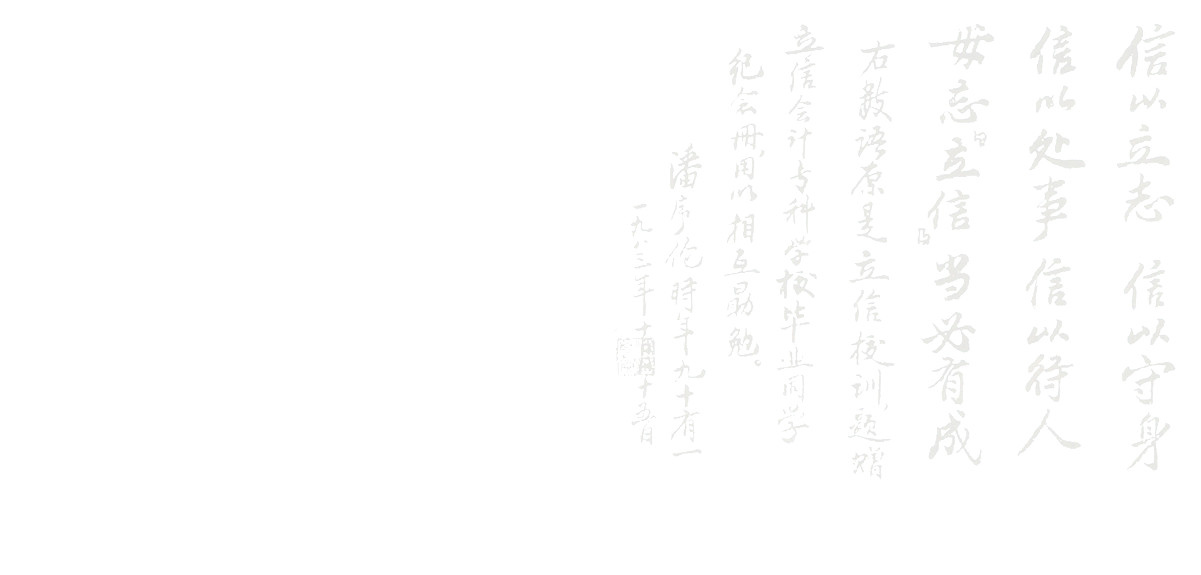 信以立志 信以守身
信以处事 信以待人
毋忘立信 当必有成
右数语原是立信校训,题赠
立信会计专科学校毕业同学
纪念册,用以相互勖勉。
潘序伦時年九十有一
一九八三年十月十五日